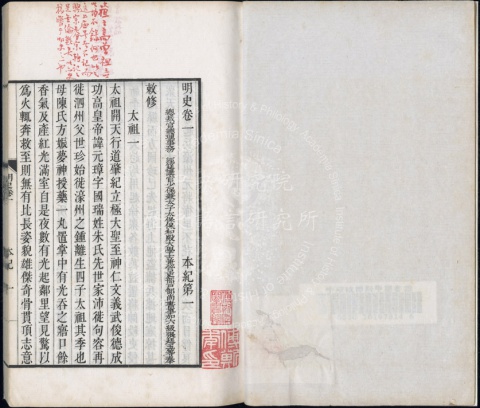 明史卷一
本紀第一
總裁官總理事務經筵講官少保兼太子太保保和殿大學士兼管吏部戶部尚書事加六級張廷玉等奉
敕修
太祖一
太祖開天行道肇紀立極大聖至神仁文義武俊德成
功高皇帝諱元璋字國瑞姓朱氏先世家沛徙句容再
徙泗州父世珍始徙濠州之鍾離生四子太祖其季也
母陳氏方娠夢神授藥一丸置掌中有光吞之寤口餘
香氣及產紅光滿室自是夜數有光起鄰里望見驚以
為火輒奔救至則無有比長姿貌雄傑奇骨貫頂志意
明史卷一
本紀
一